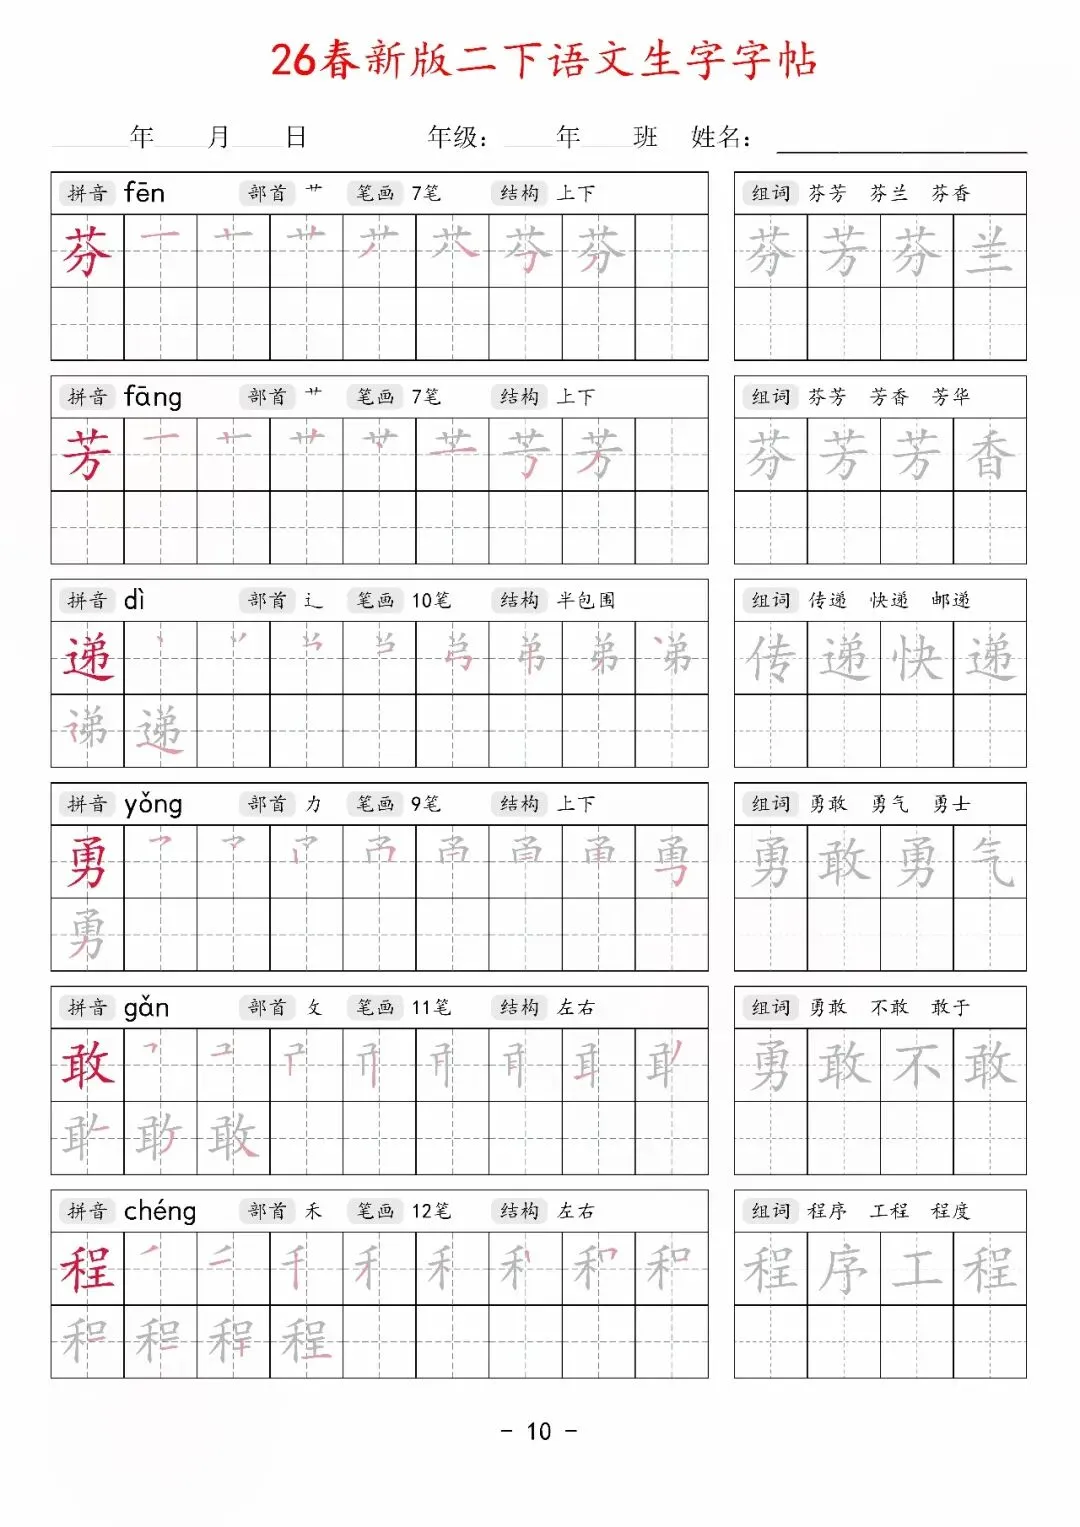 26春新版二下语文生字字帖
年 月 日 年级： 年 班 姓名：
拼音 fēn 部首 艹 笔画 7笔 结构 上下
组词 芬芳 芬兰 芬香
芬 芬
芬 芳 芬 兰
拼音 fāng 部首 艹 笔画 7笔 结构 上下
组词 芬芳 芳香 芳华
芳 芳
芬 芳 芳 香
拼音 dì 部首 辶 笔画 10笔 结构 半包围
组词 传递 快递 邮递
递
传 递 快 递
递
拼音 yǒng 部首 力 笔画 9笔 结构 上下
组词 勇敢 勇气 勇士
勇
勇 敢 勇 气
勇
拼音 gǎn 部首 攵 笔画 11笔 结构 左右
组词 勇敢 不敢 敢于
敢
勇 敢 不 敢
敢
拼音 chéng 部首 禾 笔画 12笔 结构 左右
组词 程序 工程 程度
程
程 序 工 程
程
- 10 -